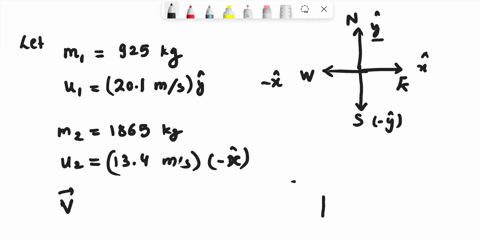 Let
m₁ = 925 kg
u₁ = (20.1 m/s) ŷ
m₂ = 1865 kg
u₂ = (13.4 m/s) (-x̂)
V⃗
N ŷ
x̂
-x̂ W E
S (-ŷ)